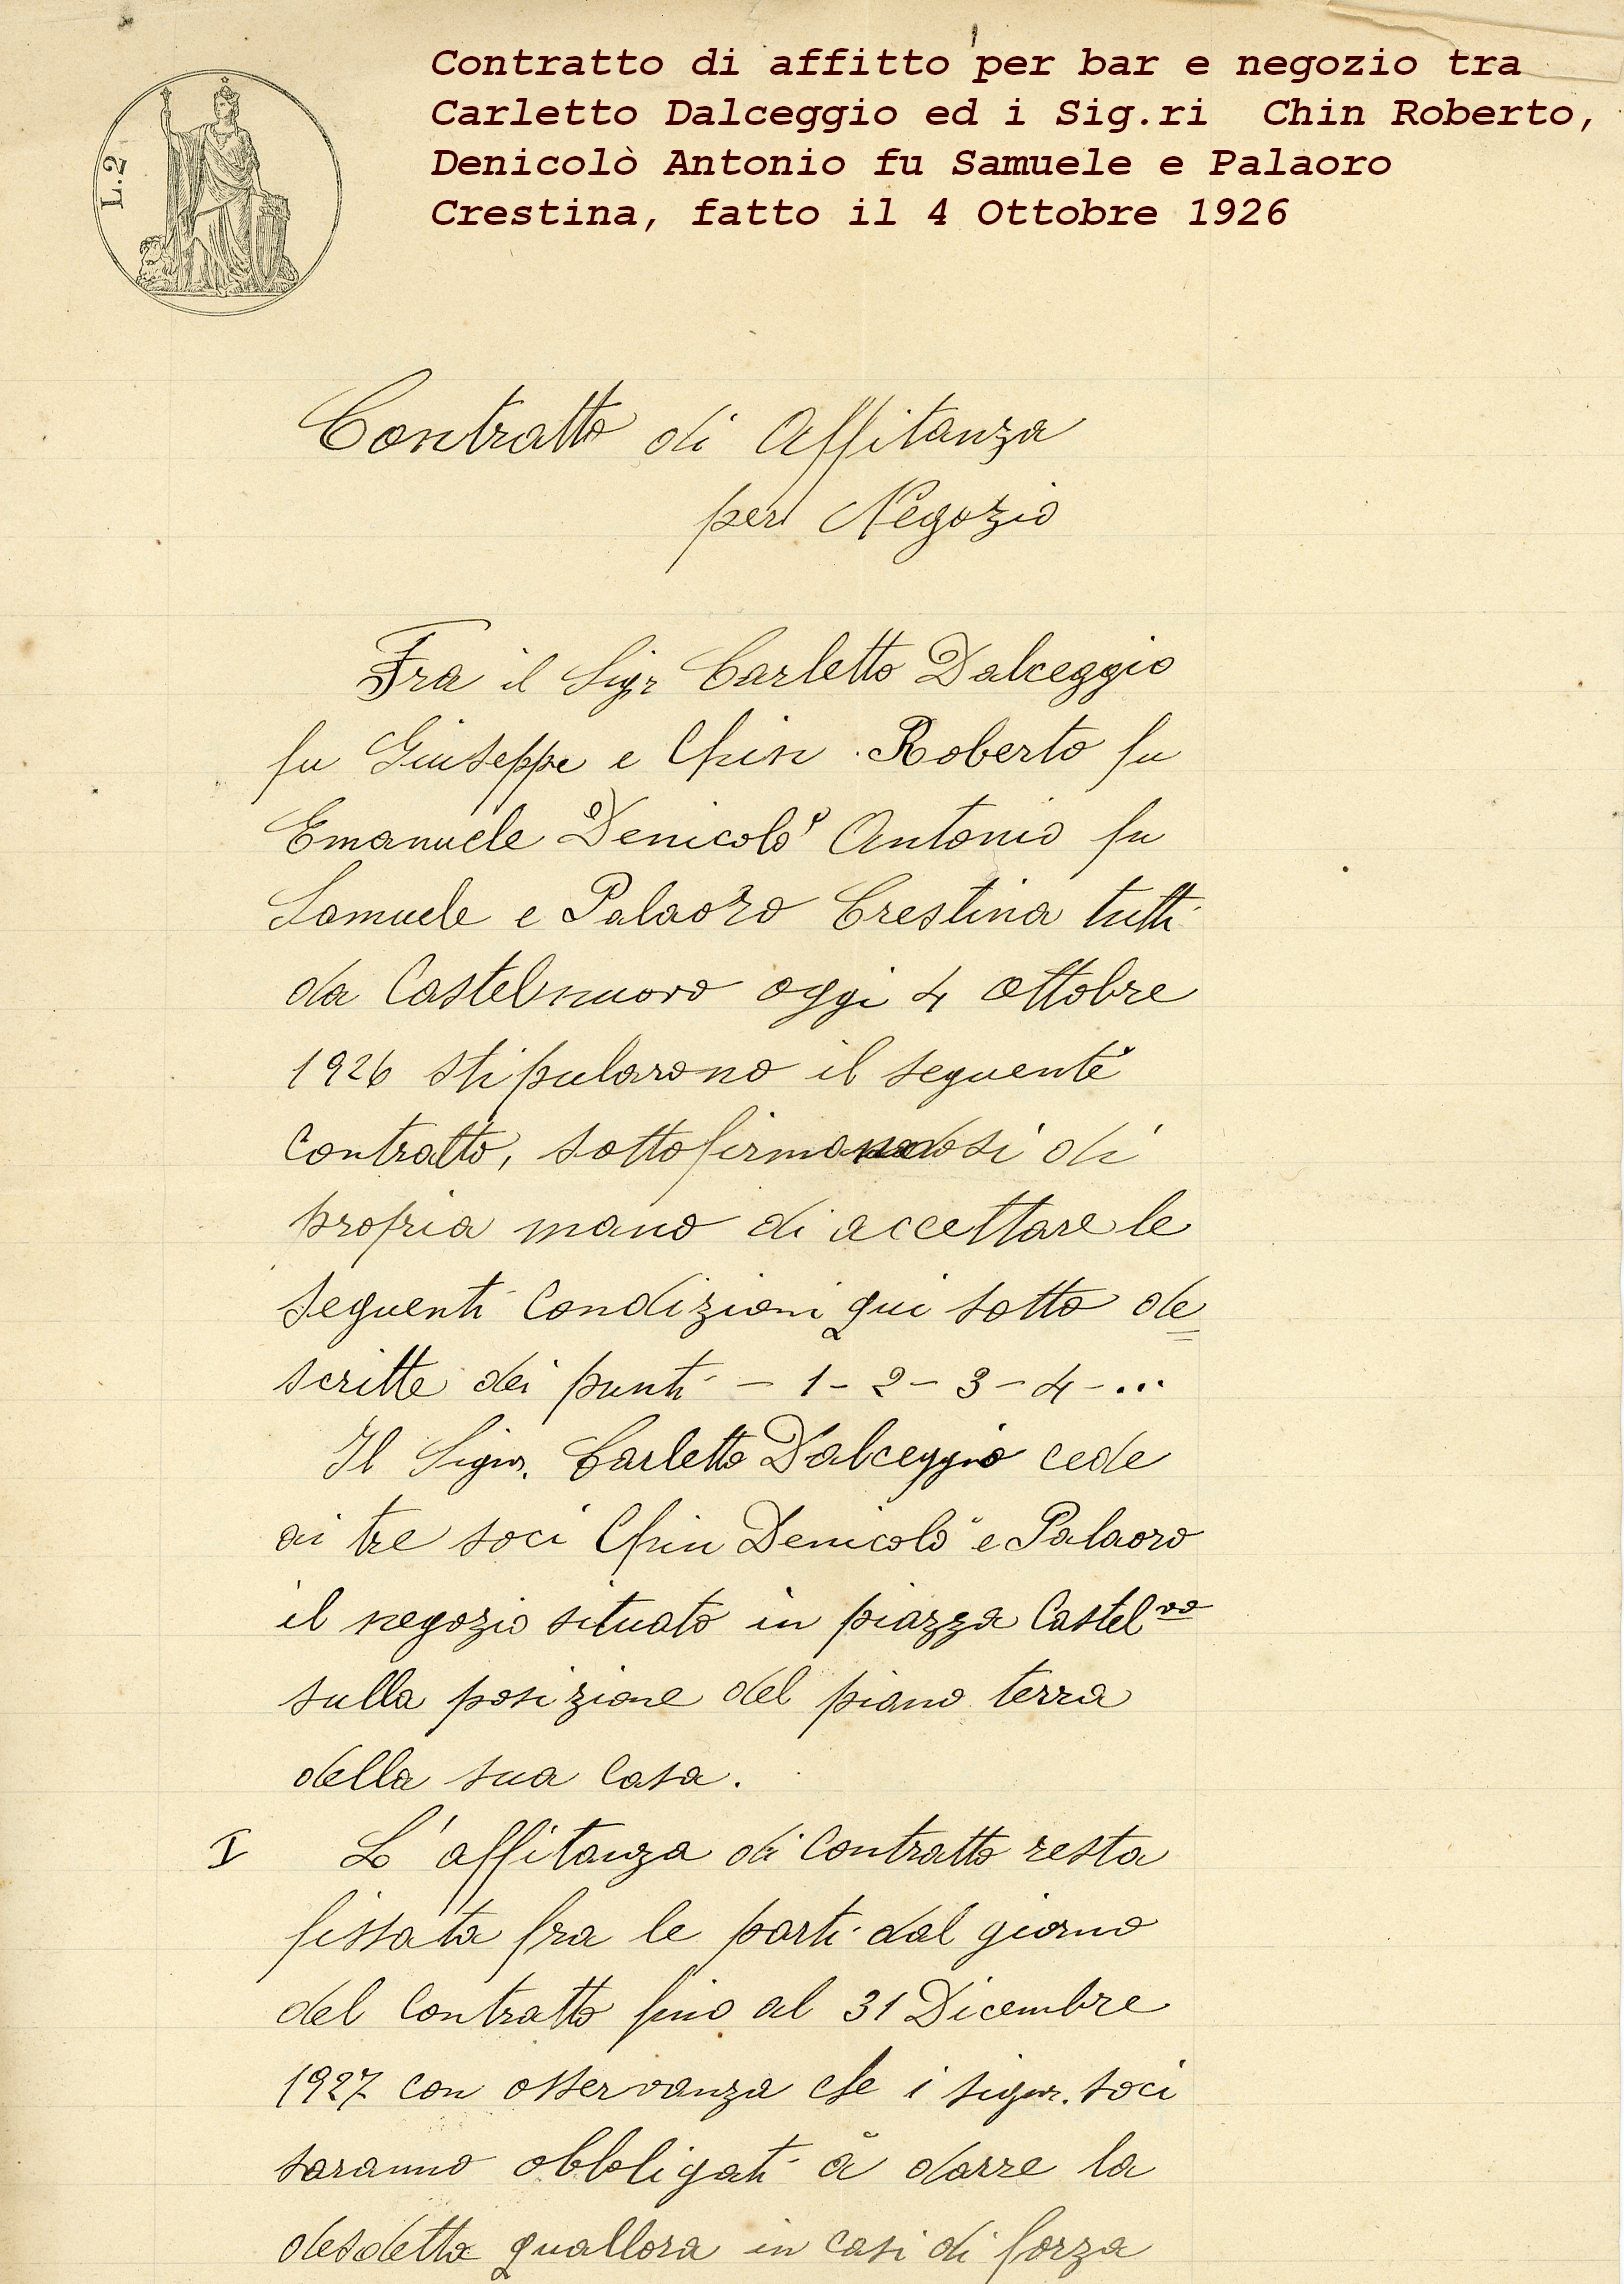 Contratto di affitto per bar e negozio tra
Carletto Dalceggio ed i Sig.ri Chin Roberto,
Denicolò Antonio fu Samuele e Palaoro
Crestina, fatto il 4 Ottobre 1926
L.2
Contratto di Affitanza
per Negozio
Fra il Sigr Carletto Dalceggio
fu Giuseppe e Chin Roberto fu
Emanuele Denicolò Antonio fu
Samuele e Palaoro Crestina tutti
da Castelnuovo oggi 4 Ottobre
1926 stipularono il seguente
Contratto, sottofirmandosi di
propria mano di accettare le
seguenti Condizioni qui sotto de=
scritte dei punti - 1 - 2 - 3 - 4 - ...
Il Signr. Carletto Dalceggio cede
ai tre soci Chin Denicolò e Palaoro
il negozio situato in piazza Castelvo
sulla posizione del piano terra
della sua Casa.
I L'affitanza di Contratto resta
fissata fra le parti dal giorno
del Contratto fino al 31 Dicembre
1927 con osservanza che i signr. soci
saranno obbligati à darre la
desdetta quallora in casi di forza